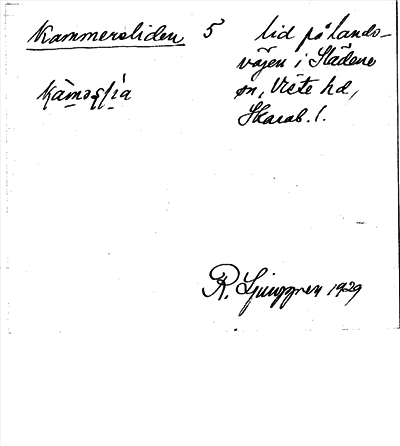 Kammersliden 5 lid på lands-
vägen i Slädene
sn, Viste hd,
Skarab. l.
R. Ljunggren 1929